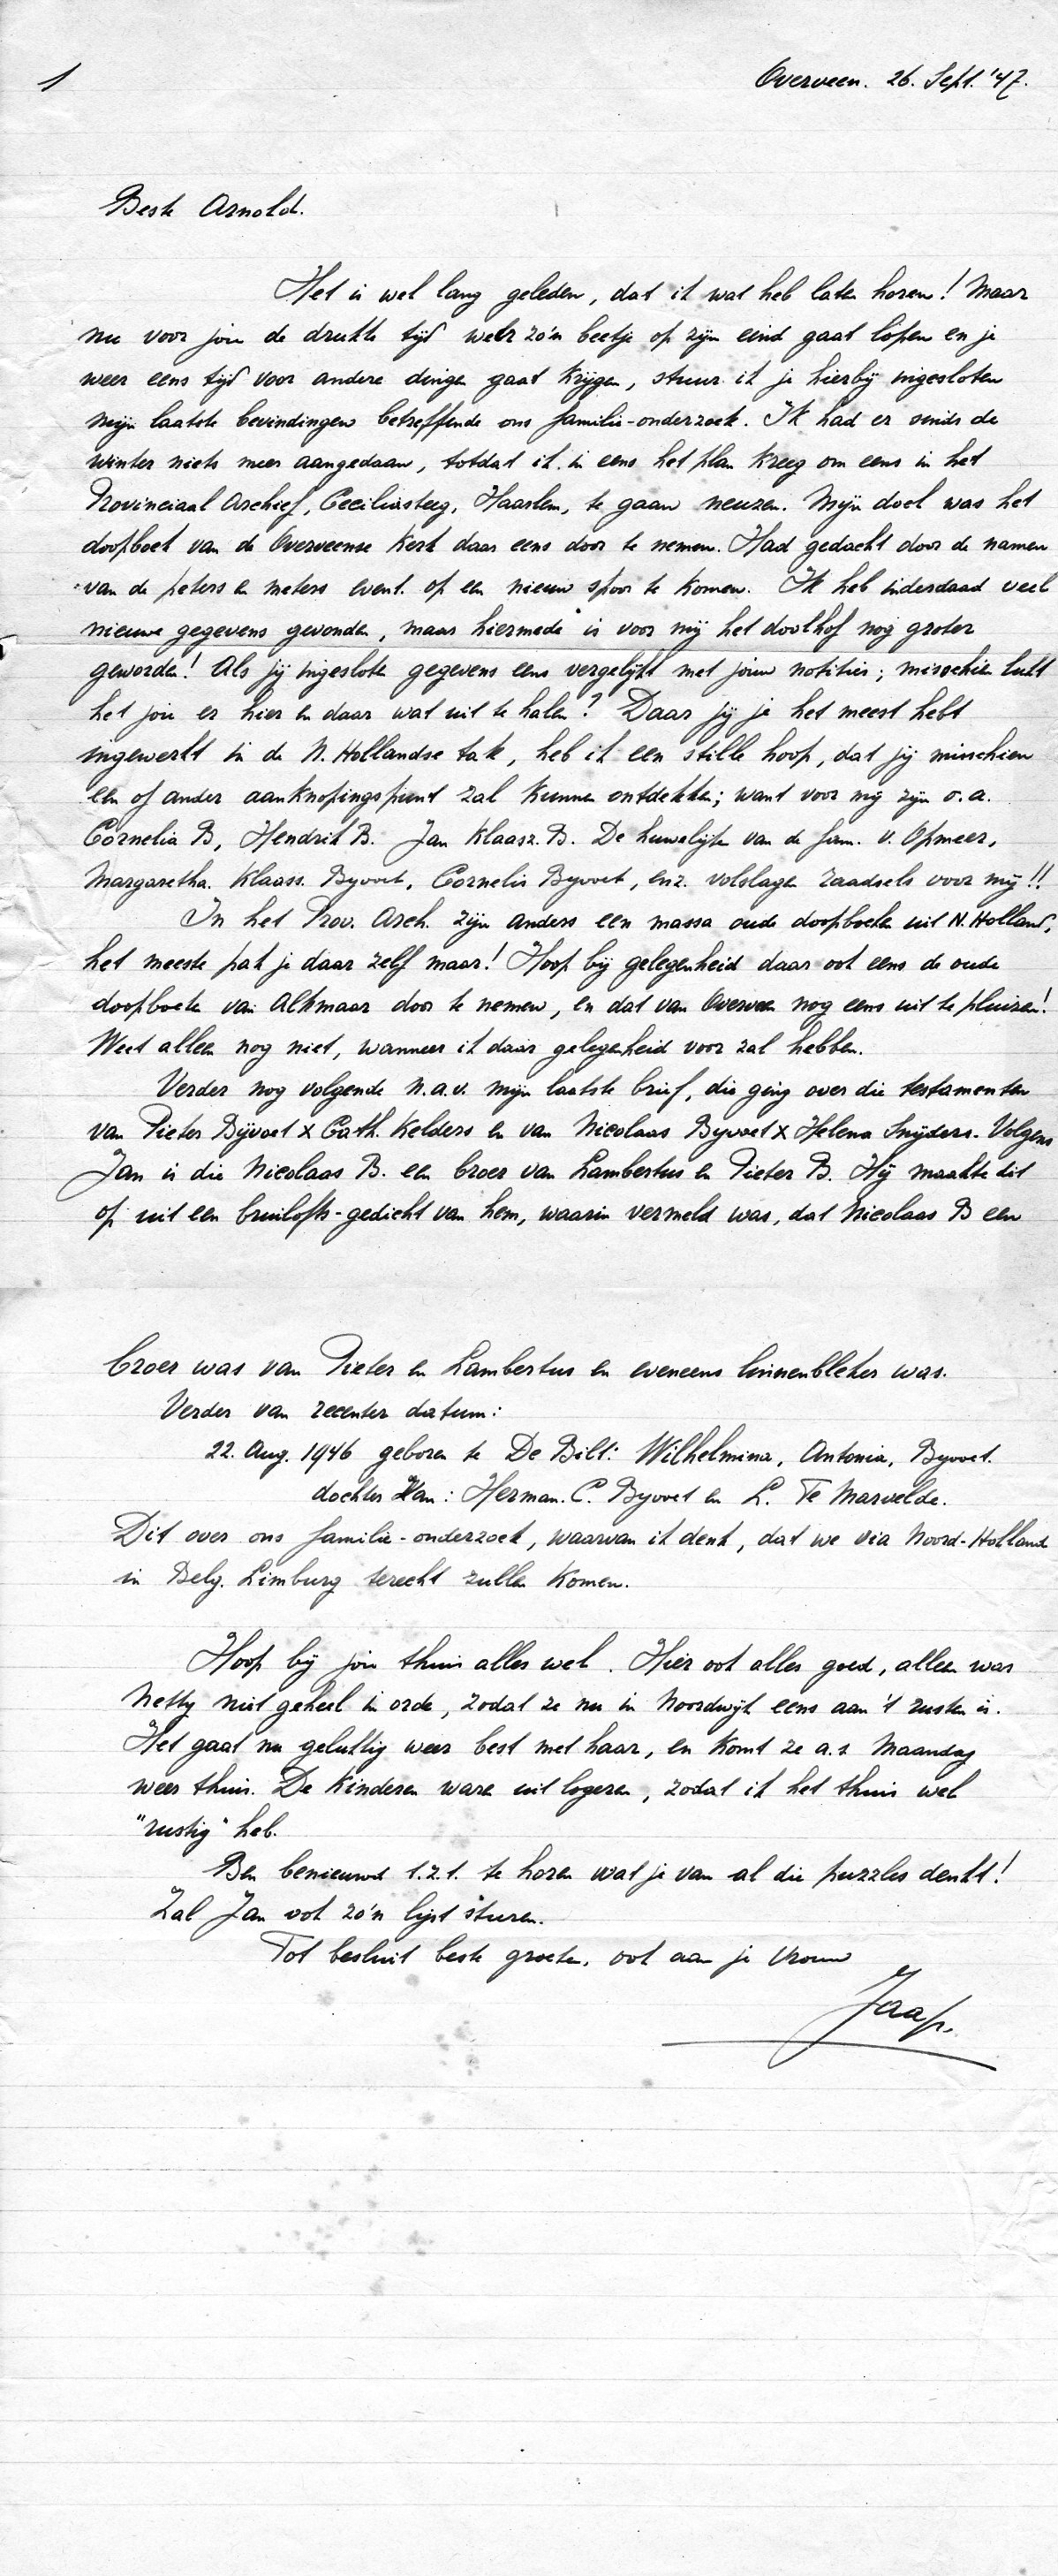 1
Overveen. 26. Sept. '47.
Beste Arnold.
Het is wel lang geleden, dat ik wat heb laten horen! Maar
nu voor jou de drukke tijd weer zo'n beetje op zijn eind gaat lopen en je
weer eens tijd voor andere dingen gaat krijgen, stuur ik je hierbij ingesloten
mijn laatste bevindingen betreffende ons familie-onderzoek. Ik had er sinds de
winter niets meer aangedaan, totdat ik in eens het plan kreeg om eens in het
Provinciaal Archief, Ceciliasteeg, Haarlem, te gaan neuzen. Mijn doel was het
doopboek van de Overveense Kerk daar eens door te nemen. Had gedacht door de namen
van de peters en meters event. op een nieuw spoor te komen. Ik heb inderdaad veel
nieuwe gegevens gevonden, maar hiermede is voor mij het doolhof nog groter
geworden! Als jij ingesloten gegevens eens vergelijkt met jouw notities; misschien lukt
het jou er hier en daar wat uit te halen? Daar jij je het meest hebt
ingewerkt in de N. Hollandse tak, heb ik een stille hoop, dat jij misschien
een of ander aanknopingspunt zal kunnen ontdekken; want voor mij zijn o.a.
Cornelia B, Hendrik B. Jan Klaasz. B. De huwelijken van de fam. v. Opmeer,
Margaretha. Klaass. Byvoet, Cornelis Byvoet, enz. volslagen raadsels voor mij!!
In het Prov. Arch. zijn anders een massa oude doopboeken uit N. Holland,
het meeste pak je daar zelf maar! Hoop bij gelegenheid daar ook eens de oude
doopboeken van Alkmaar door te nemen, en dat van Overveen nog eens uit te pluizen!
Weet alleen nog niet, wanneer ik daar gelegenheid voor zal hebben.
Verder nog volgende n.a.v. mijn laatste brief, die ging over die testamenten
van Pieter Bijvoet x Cath. Kelders en van Nicolaas Byvoet x Helena Snijders. Volgens
Jan is die Nicolaas B. een broer van Lambertus en Pieter B. Hij maakte dit
op uit een bruilofts-gedicht van hem, waarin vermeld was, dat Nicolaas B een
broer was van Pieter en Lambertus en eveneens linnenbleker was.
Verder van recenter datum:
22. Aug. 1946 geboren te De Bilt: Wilhelmina, Antonia, Byvoet.
dochter van: Herman. C. Byvoet en L. Te Marvelde.
Dit over ons familie-onderzoek, waarvan ik denk, dat we via Noord-Holland
in Belg. Limburg terecht zullen komen.
Hoop bij jou thuis alles wel. Hier ook alles goed, alleen was
Netty niet geheel in orde, zodat ze nu in Noordwijk eens aan 't rusten is.
Het gaat nu gelukkig weer best met haar, en komt ze a.s Maandag
weer thuis. De kinderen waren uit logeren, zodat ik het thuis wel
"rustig" heb.
Ben benieuwd t.z.t. te horen wat je van al die puzzles denkt!
Zal Jan ook zo'n lijst sturen.
Tot besluit beste groeten, ook aan je vrouw
Jaap.